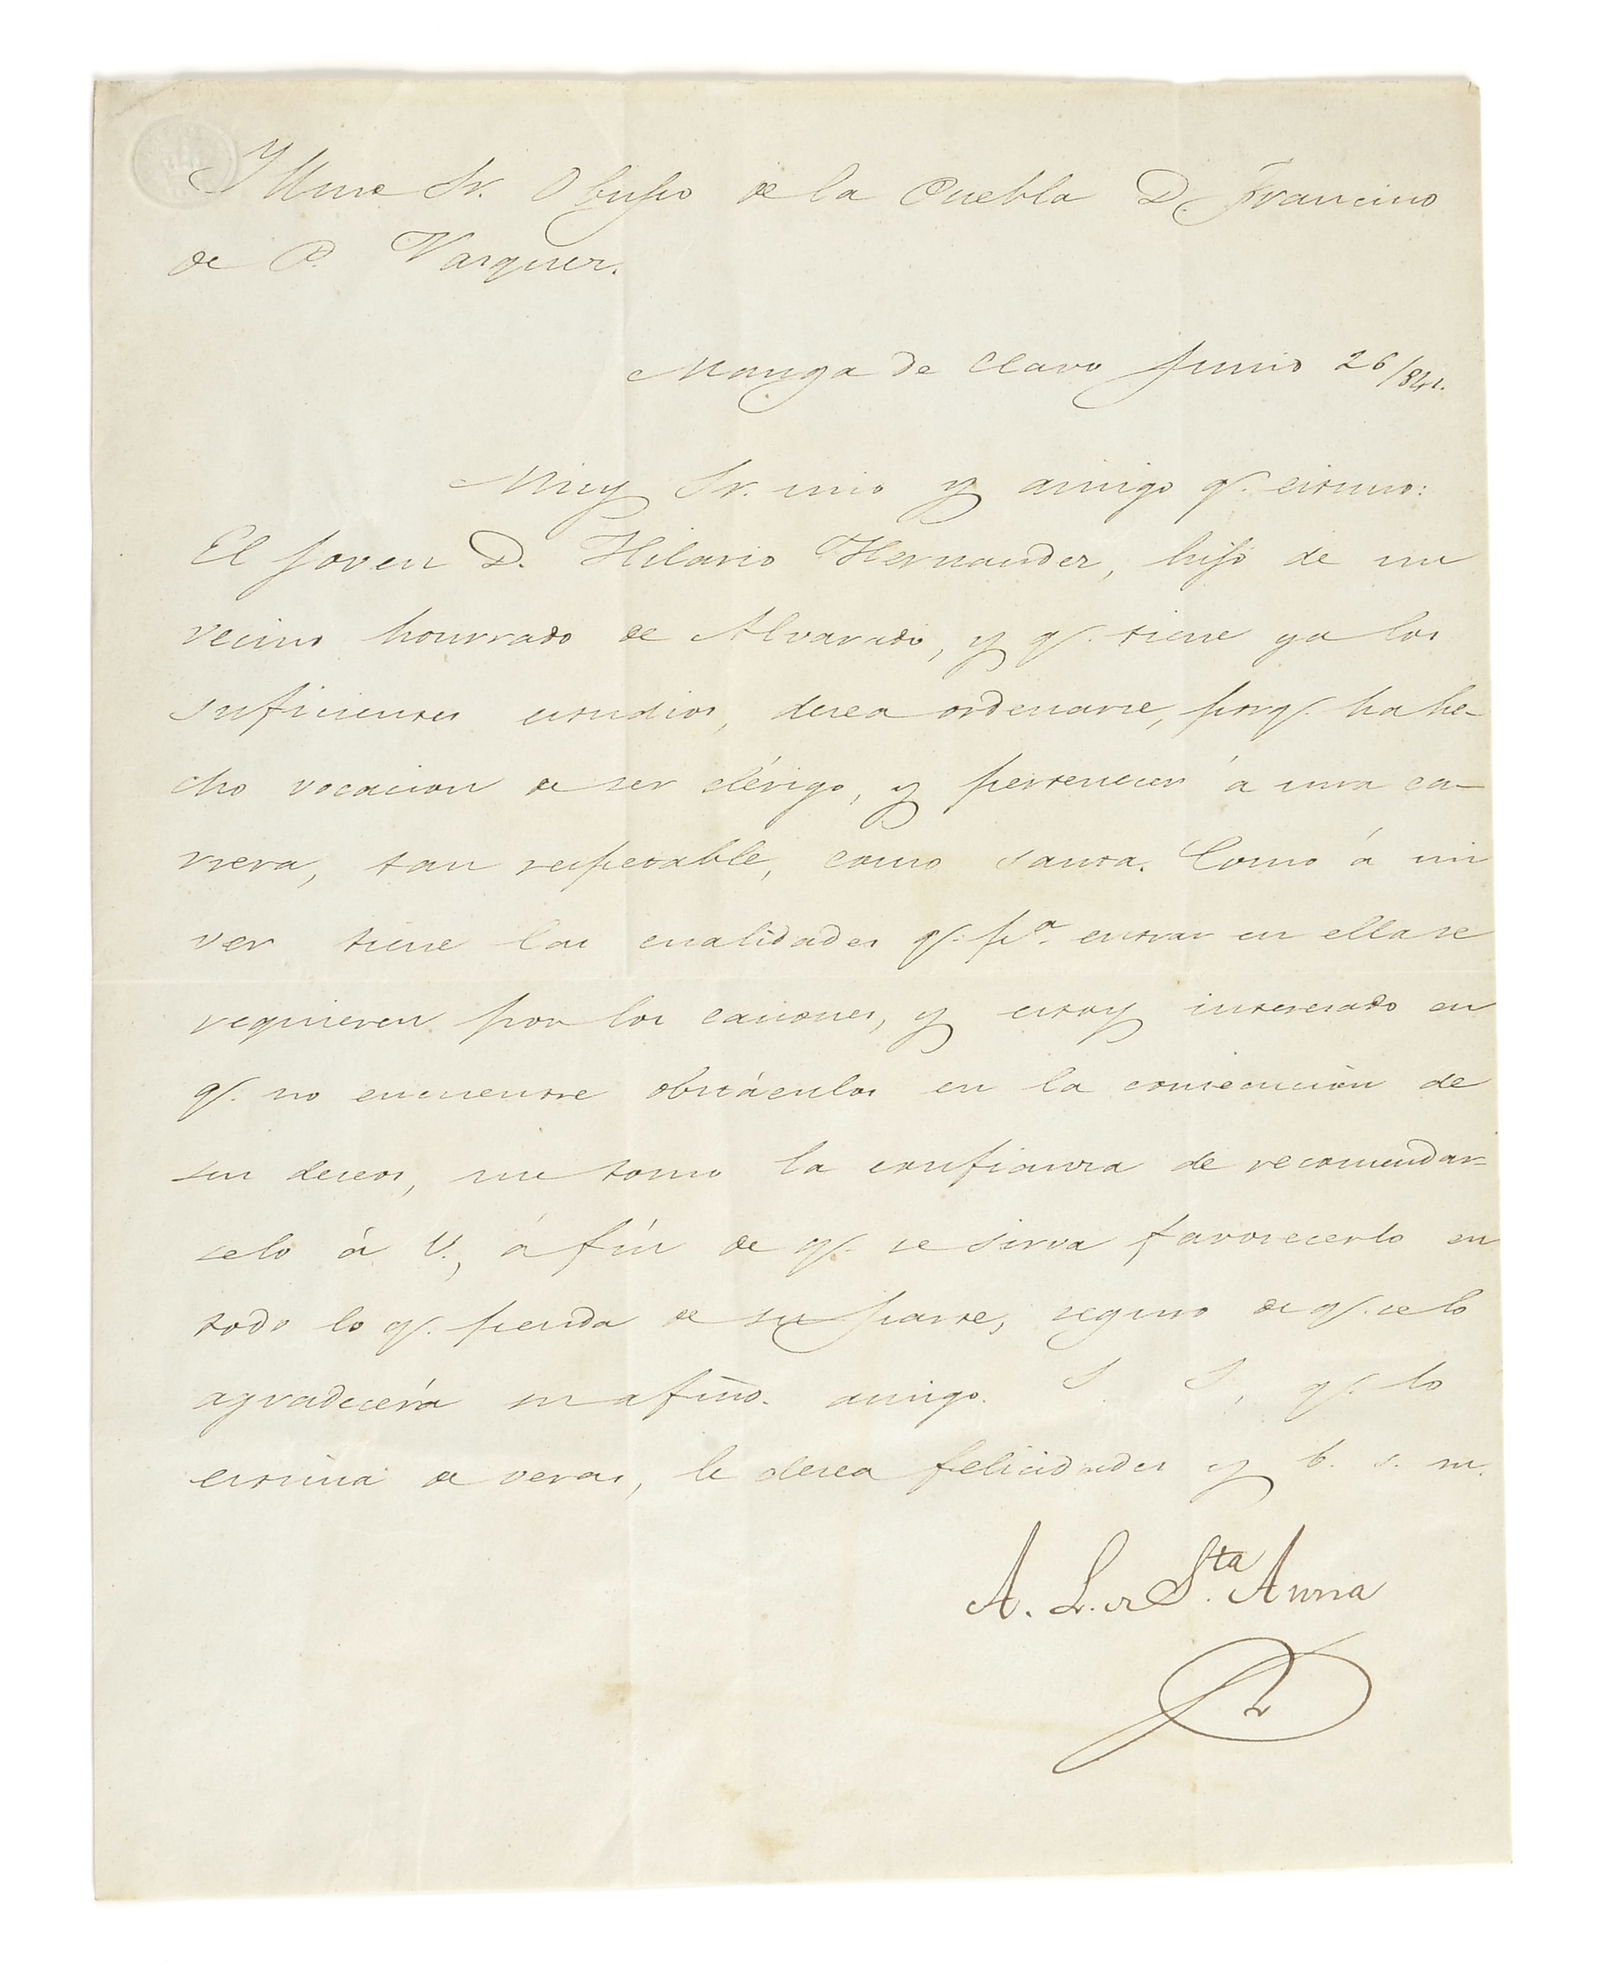 Illmo Sr. Obispo de la Puebla D. Francisco
de P. Vasquez.
Manga de Clavo Junio 26/841.
Muy Sr. mio y amigo q. estimo:
El joven D. Hilario Hernandez, hijo de un
vecino hourrado de Alvarado, y q. tiene ya los
suficientes estudios, desea ordenarse, porq. ha he-
cho vocacion de ser clérigo, y pertenecer á una ca-
rrera, tan respetable, como santa. Como á mi
ver tiene las cualidades q. pa. entrar en ella se
requieren por los canones, y estoy interesado en
q. no encuentre obstáculos en la consecucion de
sus deseos, me tomo la confianza de recomendar-
selo á V., á fin de q. se sirva favorecerlo en
todo lo q. penda de su parte, seguro de q. se lo
agradecerá su afmo. amigo. S. S, q. lo
estima de veras, le desea felicidades y b. s. m.
A. L. de Sta. Anna